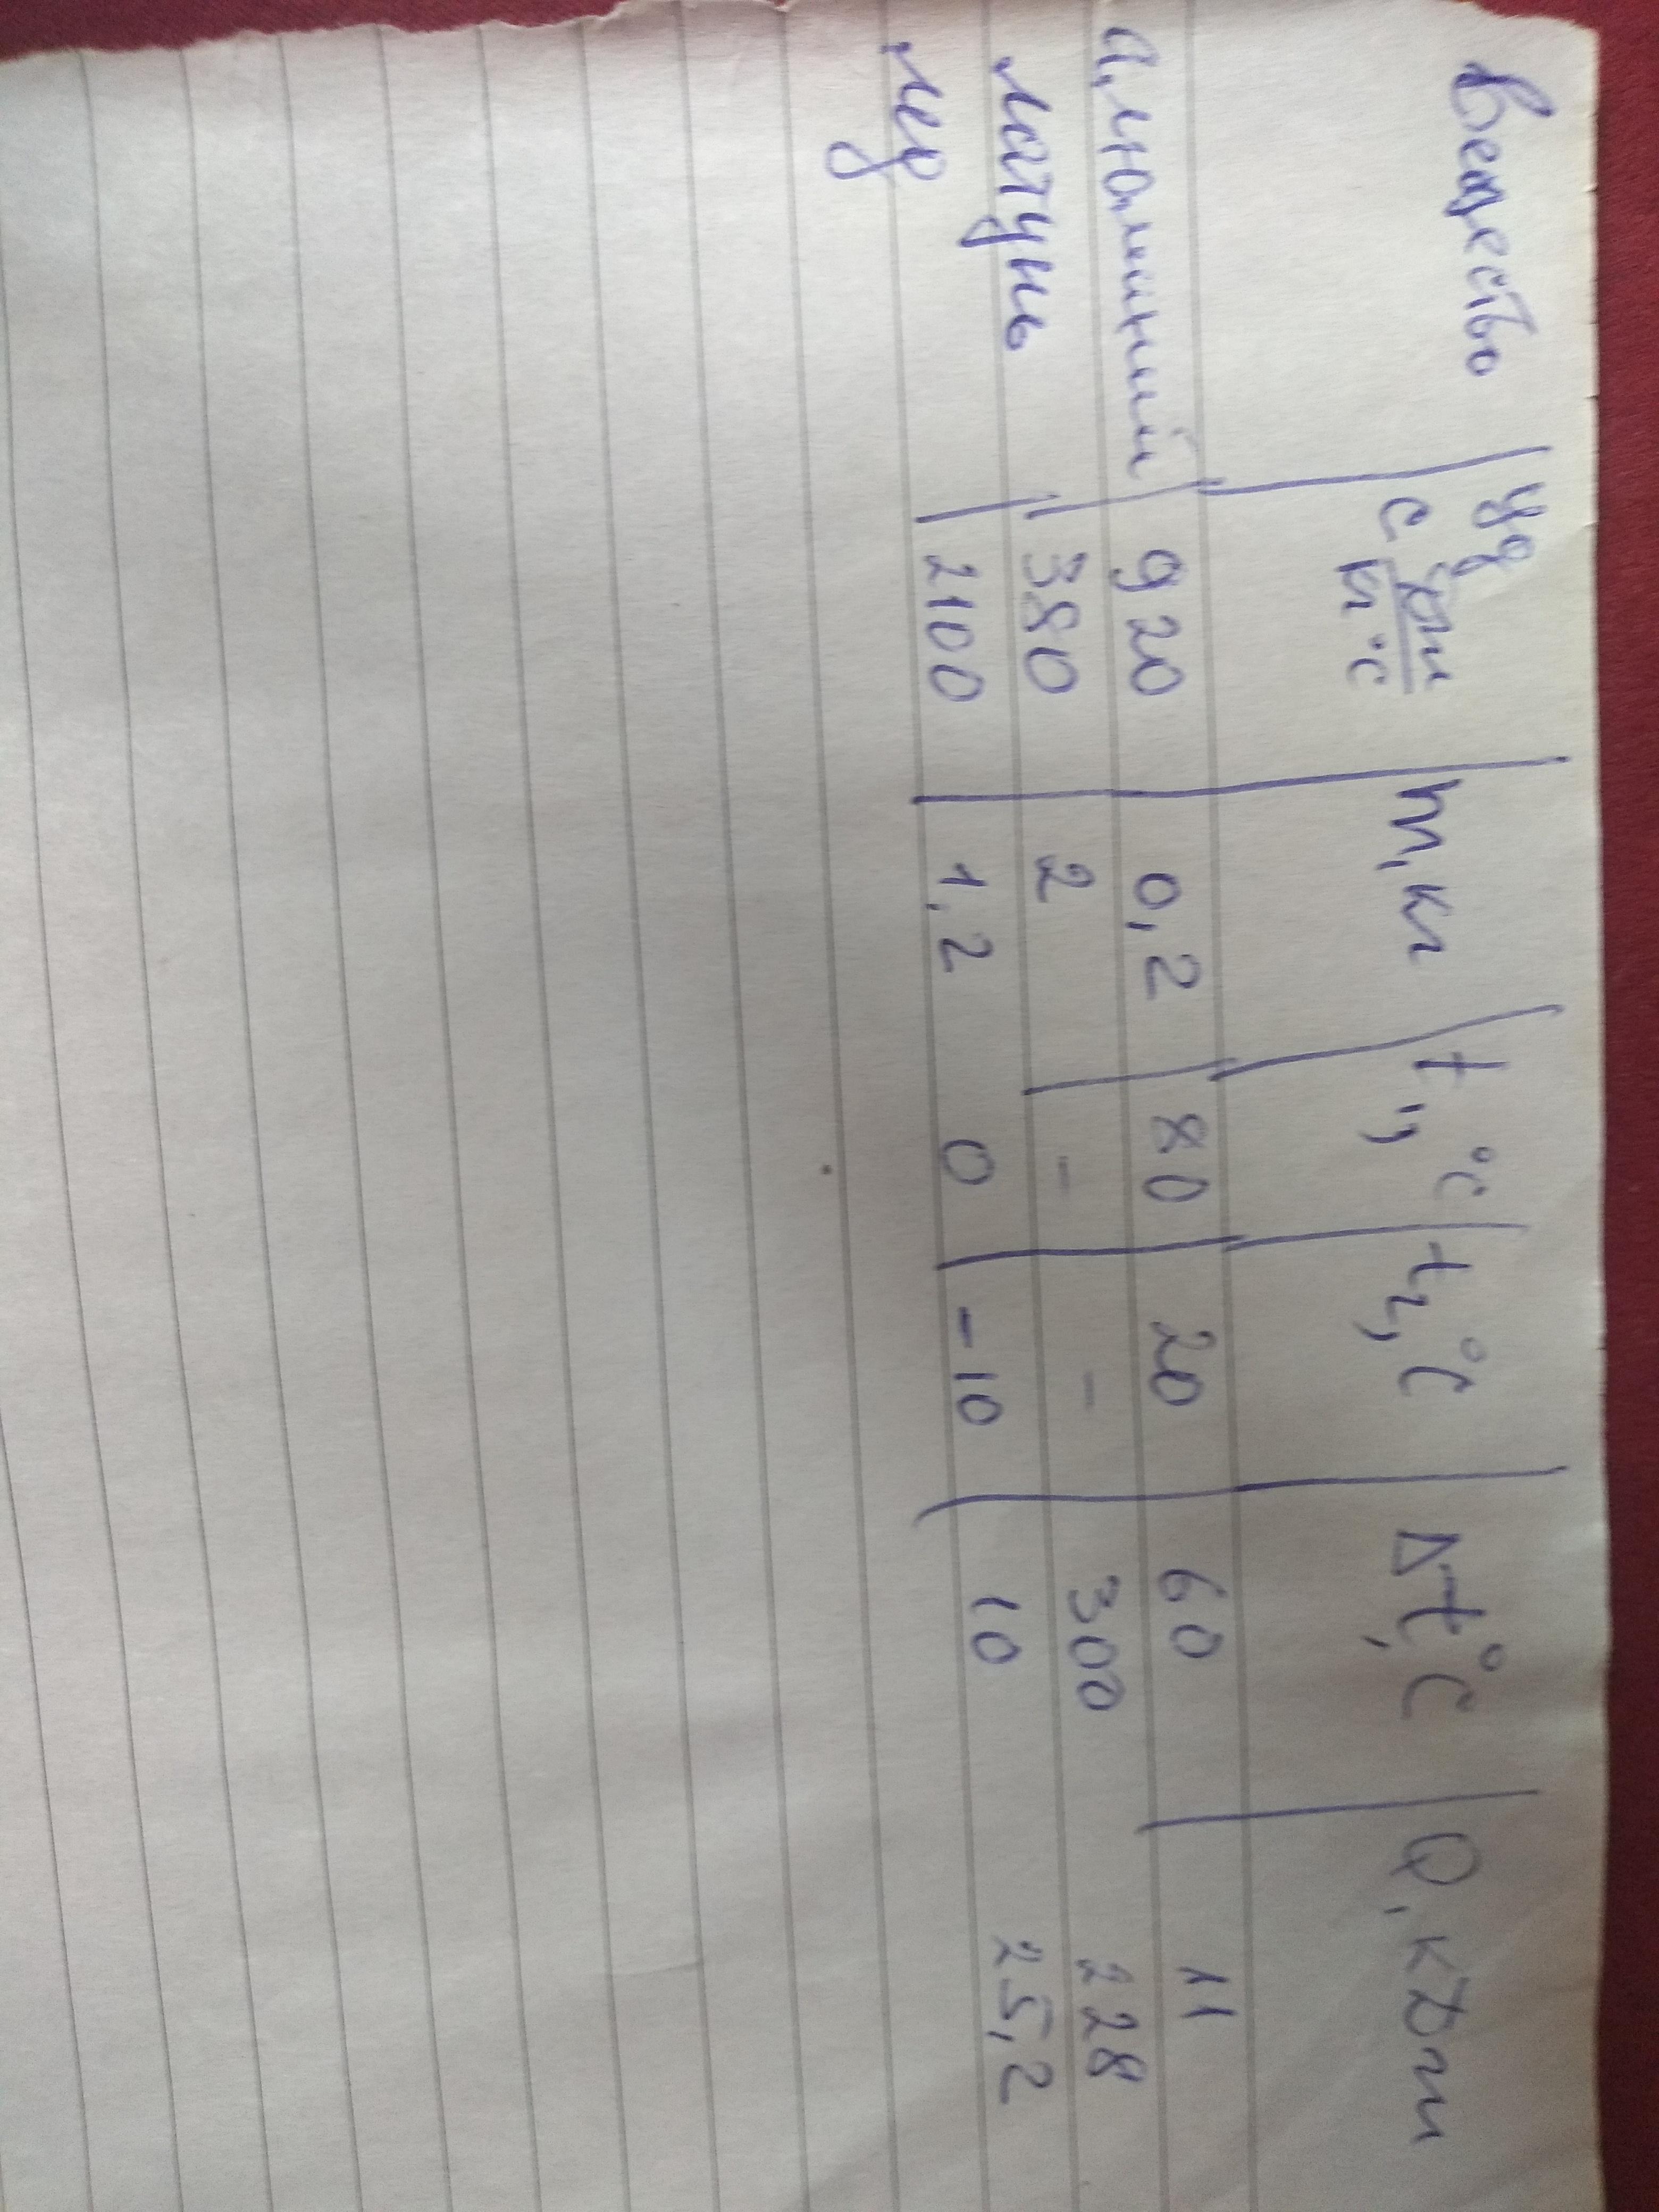 Вещество | уд c Дж/кг°С | m, кг | t₁, °С | t₂, °С | Δt, °С | Q, кДж
алюминий | 920 | 0,2 | 80 | 20 | 60 | 11
латунь | 380 | 2 | - | - | 300 | 228
лед | 2100 | 1,2 | 0 | -10 | 10 | 25,2